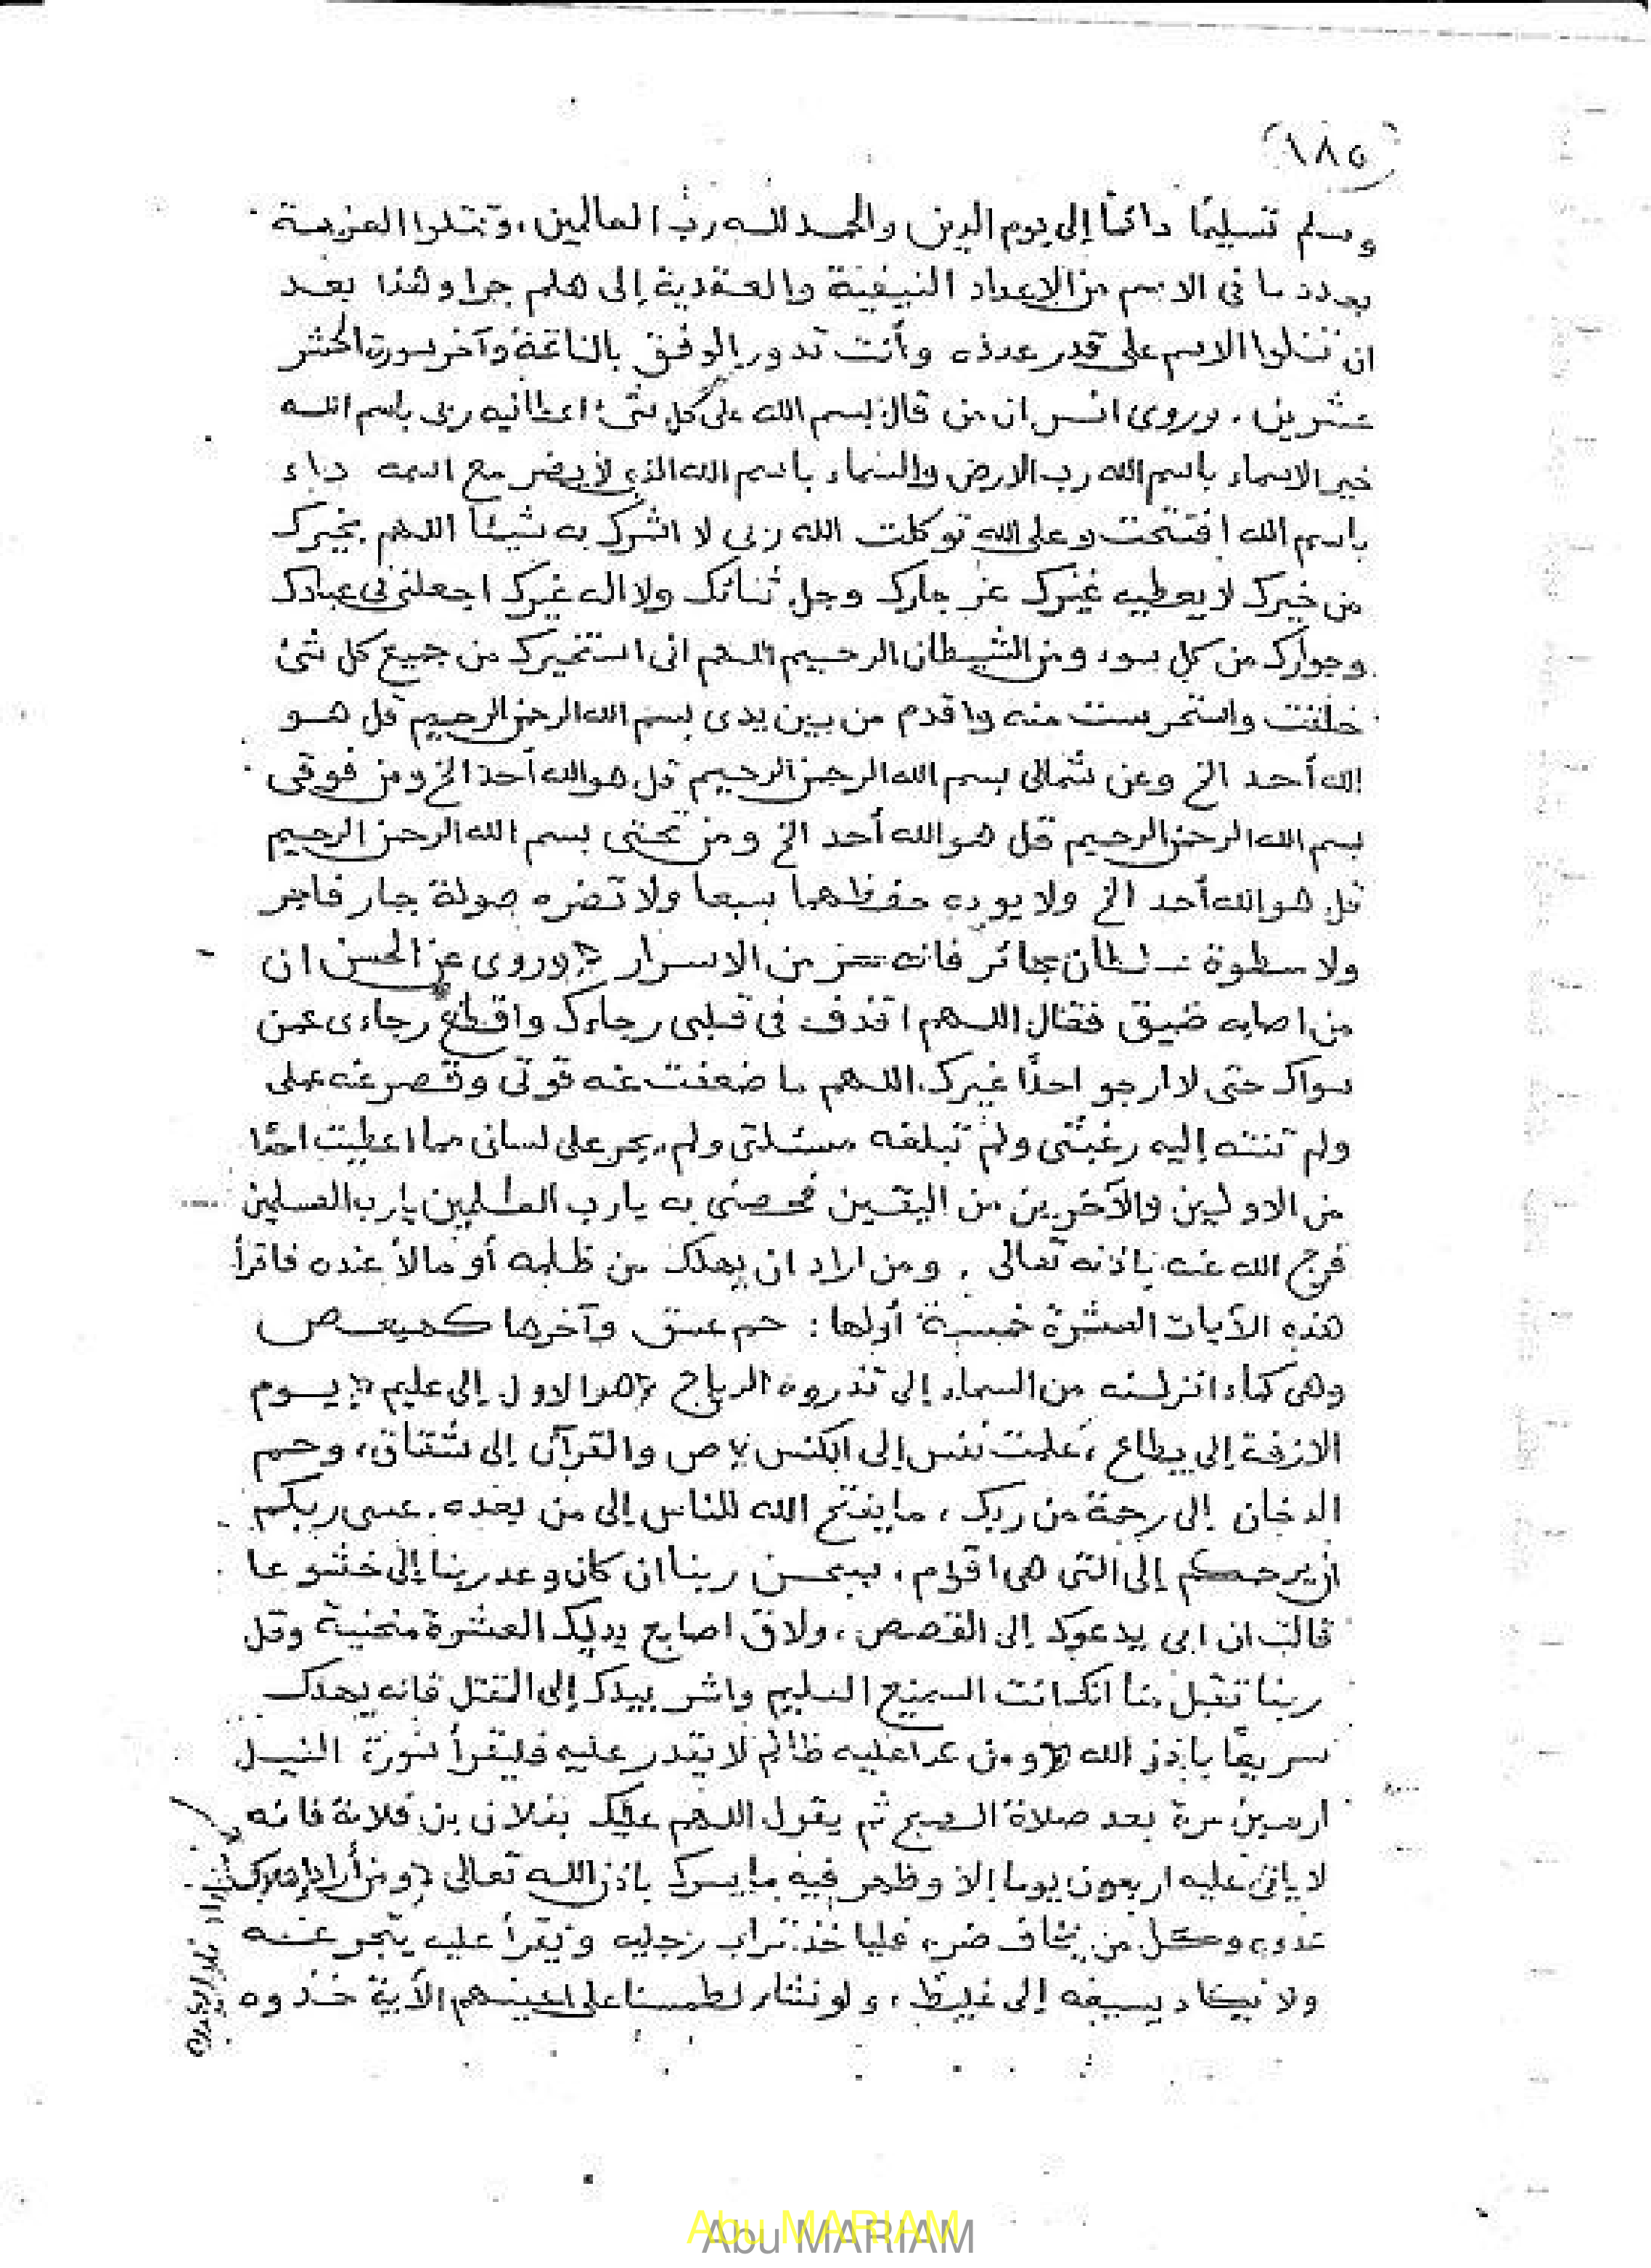 (١٨٥)
وسلم تسليمًا دائمًا إلى يوم الدين والحمد لله رب العالمين، وتتلوا العزيمة
بعدد ما في الاسم من الاعداد النيفية والعقدية إلى هلم جرا وهذا بعد
ان تتلوا الاسم على قدر عدده وأنت تدور بالوفق بالفاتحة وآخر سورة الحشر
عشرين. وروى انس ان من قال: بسم الله على كل شئ اعطانيه ربى باسم الله
خير الاسماء باسم الله رب الارض والسماء باسم الله الذى لا يضر مع اسمه داء
باسم الله افتتحت وعلى الله توكلت الله ربى لا اشرك به شيئاً اللهم بخيرك
من خيرك لا يعطيه غيرك عز جارك وجل ثنائك ولا اله غيرك اجعلنى فى عبادك
وجوارك من كل سوء ومن الشيطان الرجيم اللهم انى استخيرك من جميع كل شئ
خلقت واستحرست منه واقدم من بين يدى بسم الله الرحمن الرحيم قل هو
الله أحد الخ وعن شمالى بسم الله الرحمن الرحيم قل هو الله أحد الخ ومن فوقى
بسم الله الرحمن الرحيم قل هو الله أحد الخ ومن تحتى بسم الله الرحمن الرحيم
قل هو الله أحد الخ ولا يوده حفظهما سبعا ولا تضره صولة جار فاجر
ولا سطوة سلطان جائر فانه من الاسرار وروى عن الحسن ان
من اصابه ضيق فقال اللهم اقذف فى قلبى رجاءك واقطع رجاءى عمن
سواك حتى لا ارجو احدًا غيرك. اللهم ما ضعفت عنه قوتى وقصر عنه عملى
ولم تنته إليه رغبتى ولم تبلغه مسئلتى ولم يجر على لسانى مما اعطيت احدًا
من الاولين والآخرين من اليقين فخصنى به يارب العالمين يارب العسلمين
فرج الله عنه باذنه تعالى. ومن اراد ان يهلك من ظلمه أو مالا عنده فاقرأ
هذه الآيات العشرة خمسة أولها: حم عسق وآخرها كهيعص
وهى كماء انزلنه من السماء إلى تذروه الرياح هو الاول إلى عليم يوم
الازفة إلى يطاع، علمت نفس إلى الكنس ص والقرآن إلى شقاق، وحم
الدخان إلى رحمة من ربك، ما يفتح الله للناس إلى من بعده. عسى ربكم
ان يرحمكم إلى التى هى اقوم، سبحن ربنا ان كان وعد ربنا إلى خشوعا
قالت ان ابى يدعوك إلى القصص، ولاق اصابع يديك العشرة منحنية وقل
ربنا تقبل منا انك انت السميع العليم واشر بيدك إلى المقتل فانه يهلك
سريعًا باذن الله ومن عدا عليه ظالم لا يقدر عليه فليقرأ سورة الفيل
اربعين مرة بعد صلاة الصبح ثم يقول اللهم عليك بفلان بن فلانة فانه
لا ياتى عليه اربعون يوما إلا وظهر فيه ما يسرك باذن الله تعالى ومن أراد
عدوه وكل من يخاف ضره فلياخذ تراب رجليه ويقرأ عليه يتجرعنه
ولا يكاد يسيغه إلى غليظ، ولو نشاء لطمسنا على اعينهم الآية خذوه
Abu MARIAM